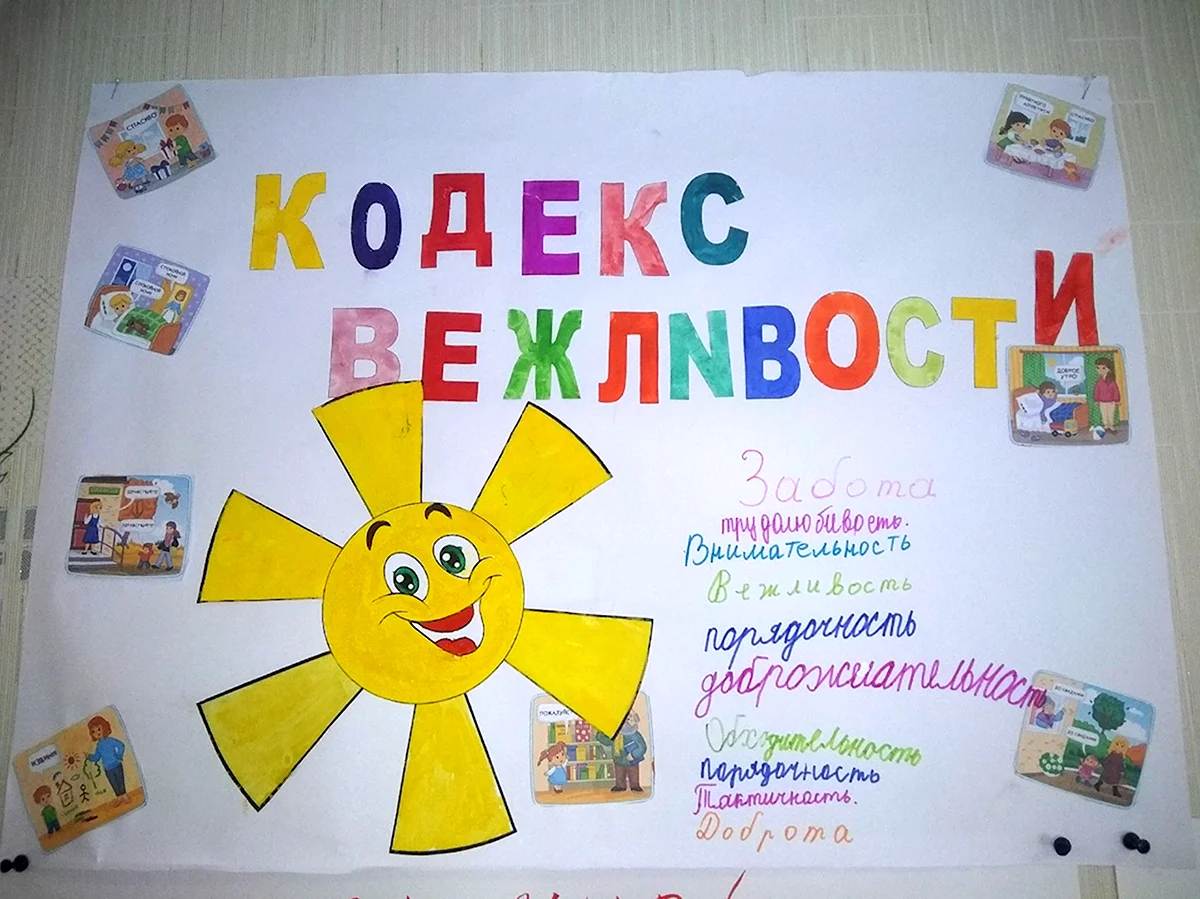 СПАСИБО!
ПРИЯТНОГО АППЕТИТА!
СПАСИБО!
КОДЕКС
ВЕЖЛИВОСТИ
СПОКОЙНОЙ НОЧИ!
СПОКОЙНОЙ НОЧИ!
ДОБРОЕ УТРО!
ЗДРАВСТВУЙТЕ!
ЗДРАВСТВУЙТЕ!
Забота
трудолюбивость.
Внимательность
Вежливость
порядочность
доброжелательность
ДО СВИДАНИЯ!
ДО СВИДАНИЯ!
Обходительность
порядочность
Тактичность.
Доброта
ИЗВИНИТЕ!